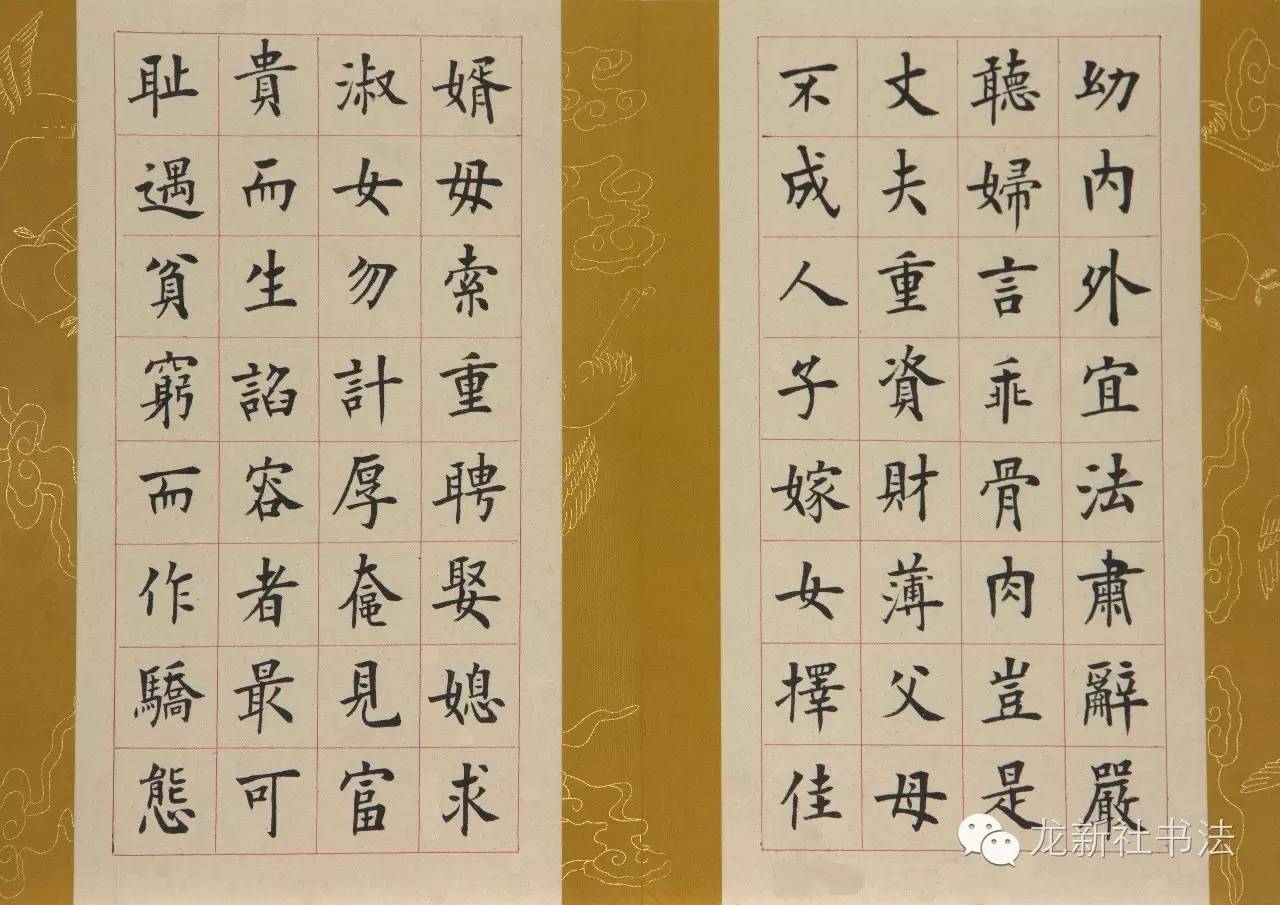 幼内外宜法肅辭嚴
聽婦言乖骨肉豈是
丈夫重資財薄父母
不成人子嫁女擇佳
婿毋索重聘娶媳求
淑女勿計厚奩見富
貴而生諂容者最可
耻遇貧窮而作驕態
龙新社书法